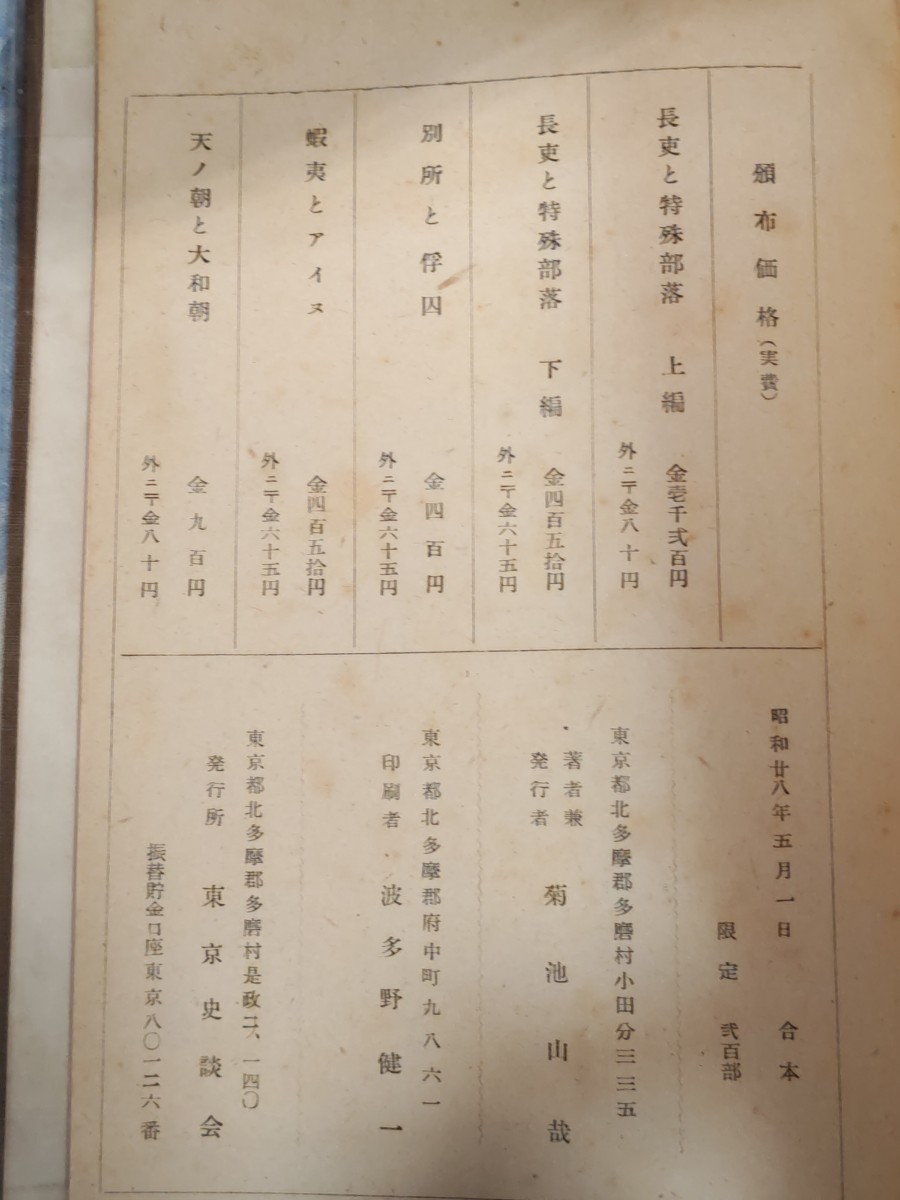 頒布価格（実費）
長吏と特殊部落　上編　金壱千弐百円
外ニ〒金八十円
長吏と特殊部落　下編　金四百五拾円
外ニ〒金六十五円
別所と俘囚　金四百円
外ニ〒金六十五円
蝦夷とアイヌ　金四百五拾円
外ニ〒金六十五円
天ノ朝と大和朝　金九百円
外ニ〒金八十円
昭和廿八年五月一日　合本
限定　弐百部
東京都北多摩郡多磨村小田分三三五
著者兼
発行者　菊池山哉
東京都北多摩郡府中町九八六一
印刷者　波多野健一
東京都北多摩郡多磨村是政二、一四〇
発行所　東京史談会
振替貯金口座東京八〇一二六番